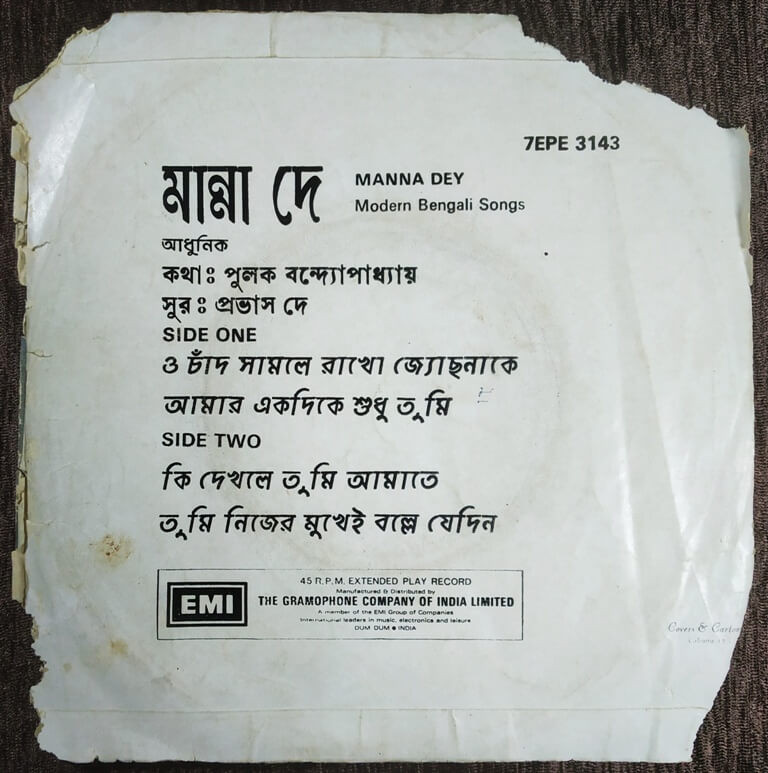 7EPE 3143
মান্না দে
MANNA DEY
Modern Bengali Songs
আধুনিক
কথা : পুলক বন্দ্যোপাধ্যায়
সুর : প্রভাস দে
SIDE ONE
ও চাঁদ সামলে রাখো জ্যোছনাকে
আমার একদিকে শুধু তুমি
SIDE TWO
কি দেখলে তুমি আমাতে
তুমি নিজের মুখেই বল্লে যেদিন
EMI
45 R.P.M. EXTENDED PLAY RECORD
Manufactured & Distributed by
THE GRAMOPHONE COMPANY OF INDIA LIMITED
A member of the EMI Group of Companies
International leaders in music, electronics and leisure
DUM DUM ● INDIA
Covers &